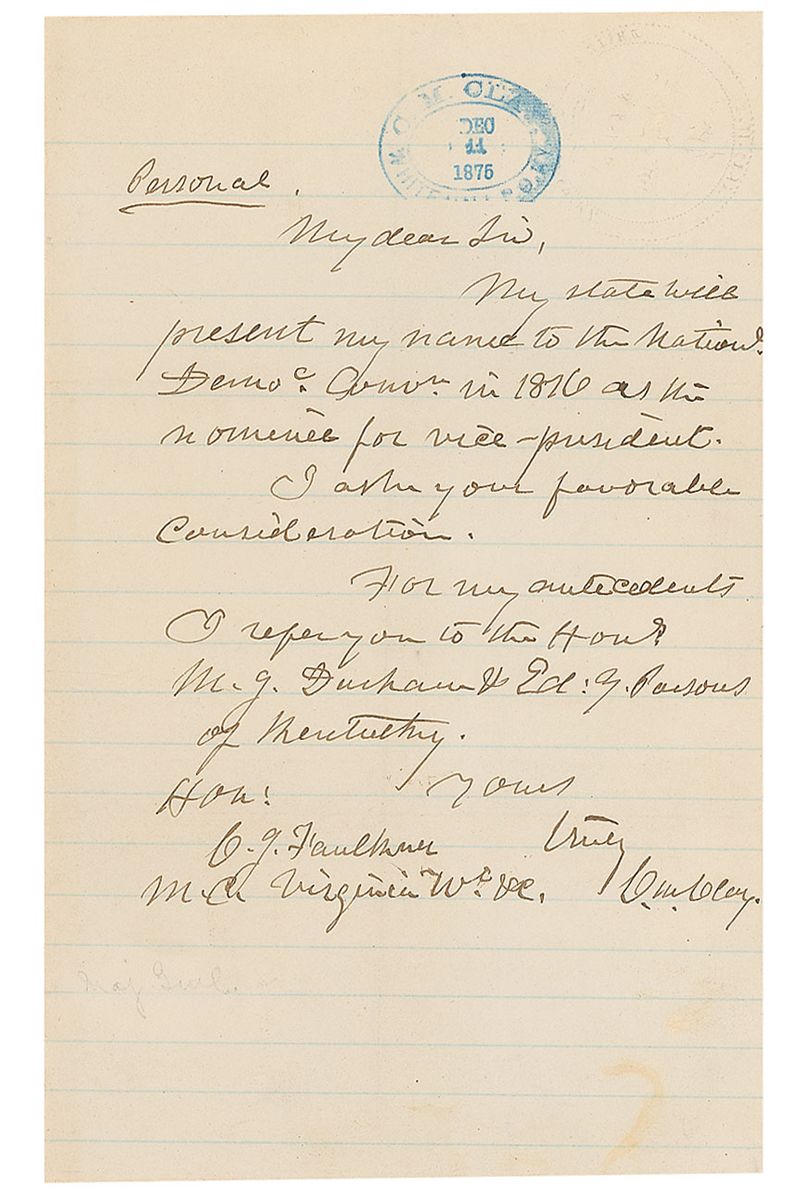 C. M. CLAY
DEC
11
1875
WHITEHALL P.O. KY.
Personal.
My dear Sir,
My state will
present my name to the Nationl.
Democ. Convn. in 1876 as the
nominee for vice-president.
I ask your favorable
Consideration.
For my antecedents
I refer you to the Honl.
M. J. Durham & Ed: Y. Parsons
of Kentucky.
Hon: Yours
C. J. Faulkner truly
M.C. Virginia Wt. &c. C. M. Clay.
Maj Genl.